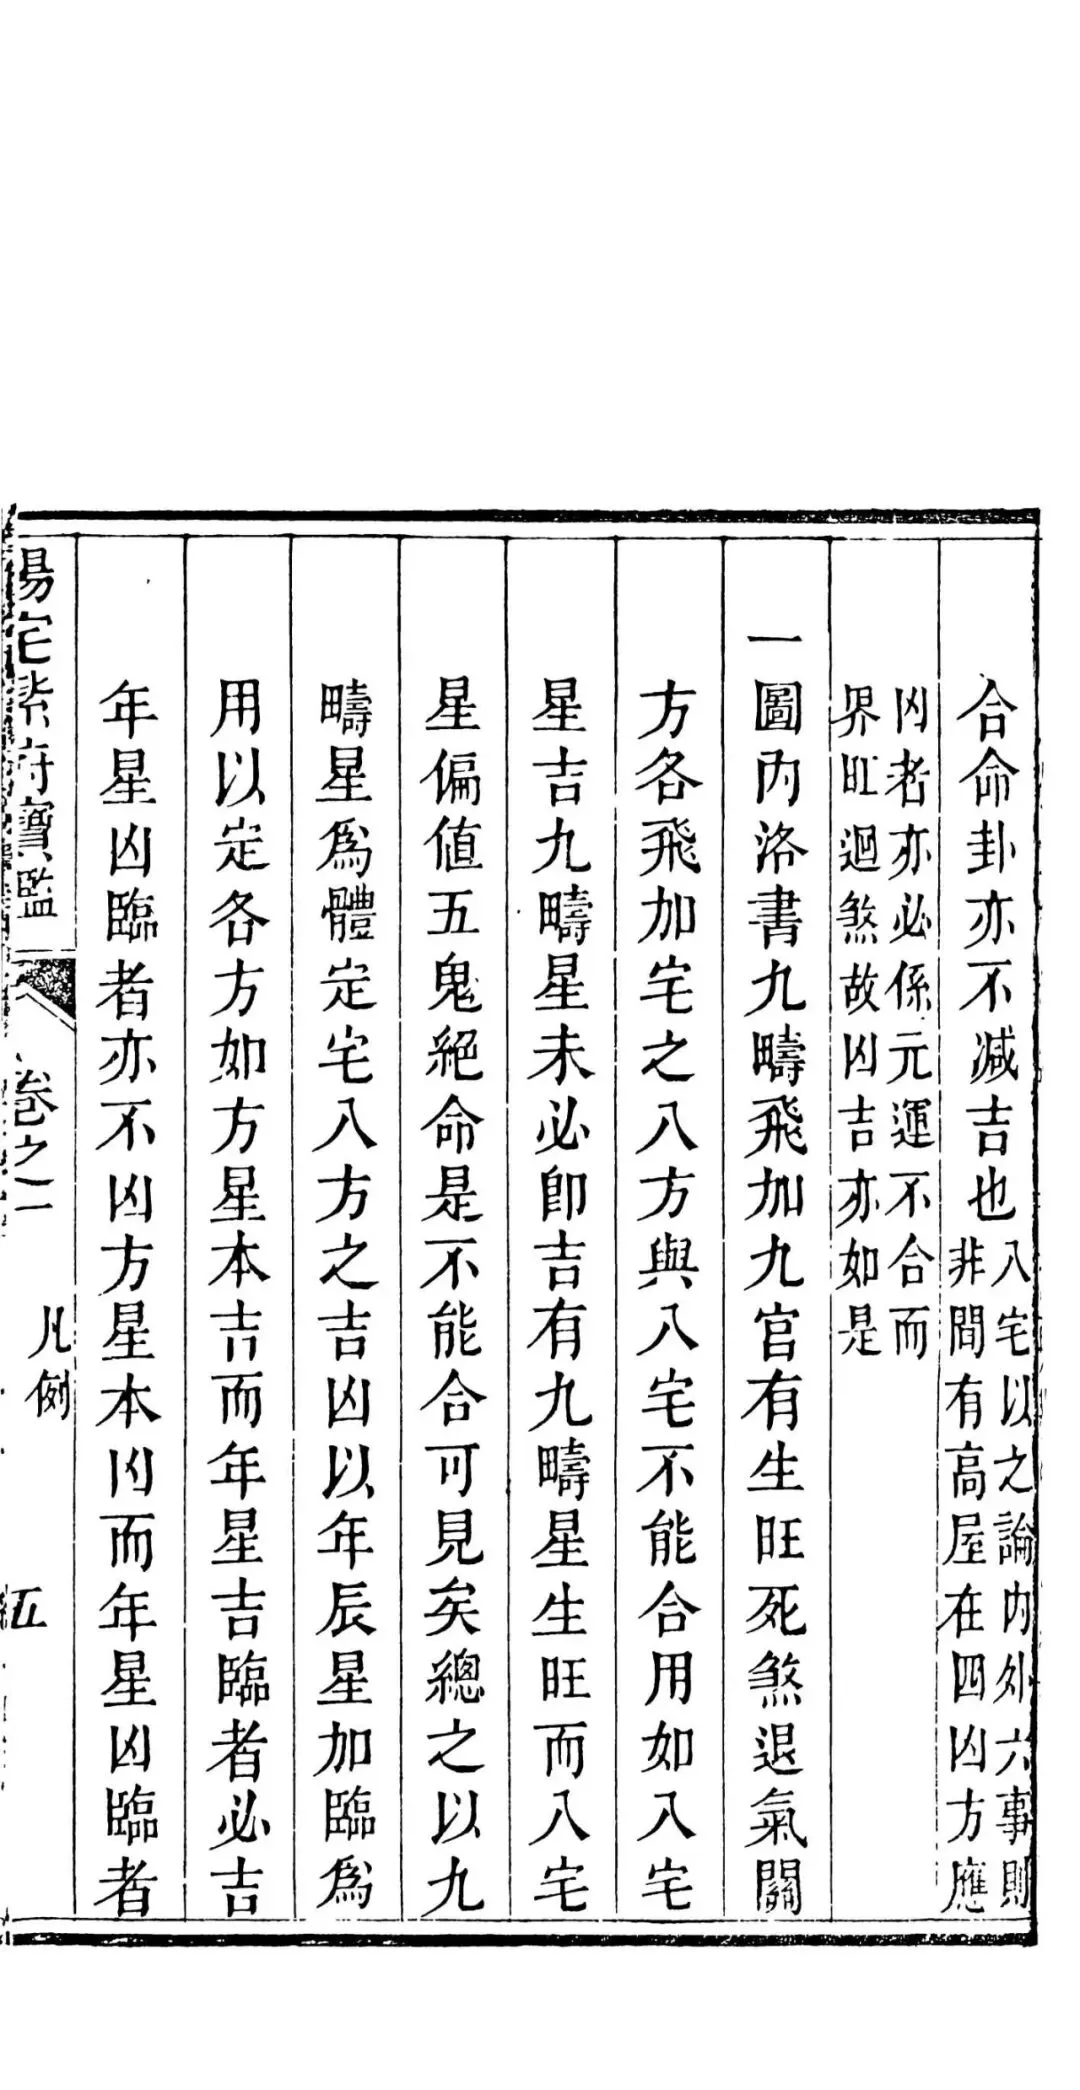 合命卦亦不減吉也
八宅以之論內外六事則
非間有高屋在四凶方應
凶者亦必係元運不合而
界旺迴煞故凶吉亦如是
一圖內洛書九疇飛加九宮有生旺死煞退氣關
方各飛加宅之八方與八宅不能合用如八宅
星吉九疇星未必卽吉有九疇星生旺而八宅
星偏值五鬼絕命是不能合可見矣總之以九
疇星爲體定宅八方之吉凶以年辰星加臨爲
用以定各方如方星本吉而年星吉臨者必吉
年星凶臨者亦不凶方星本凶而年星凶臨者
陽宅紫府寶鑑
卷之一
凡例
五